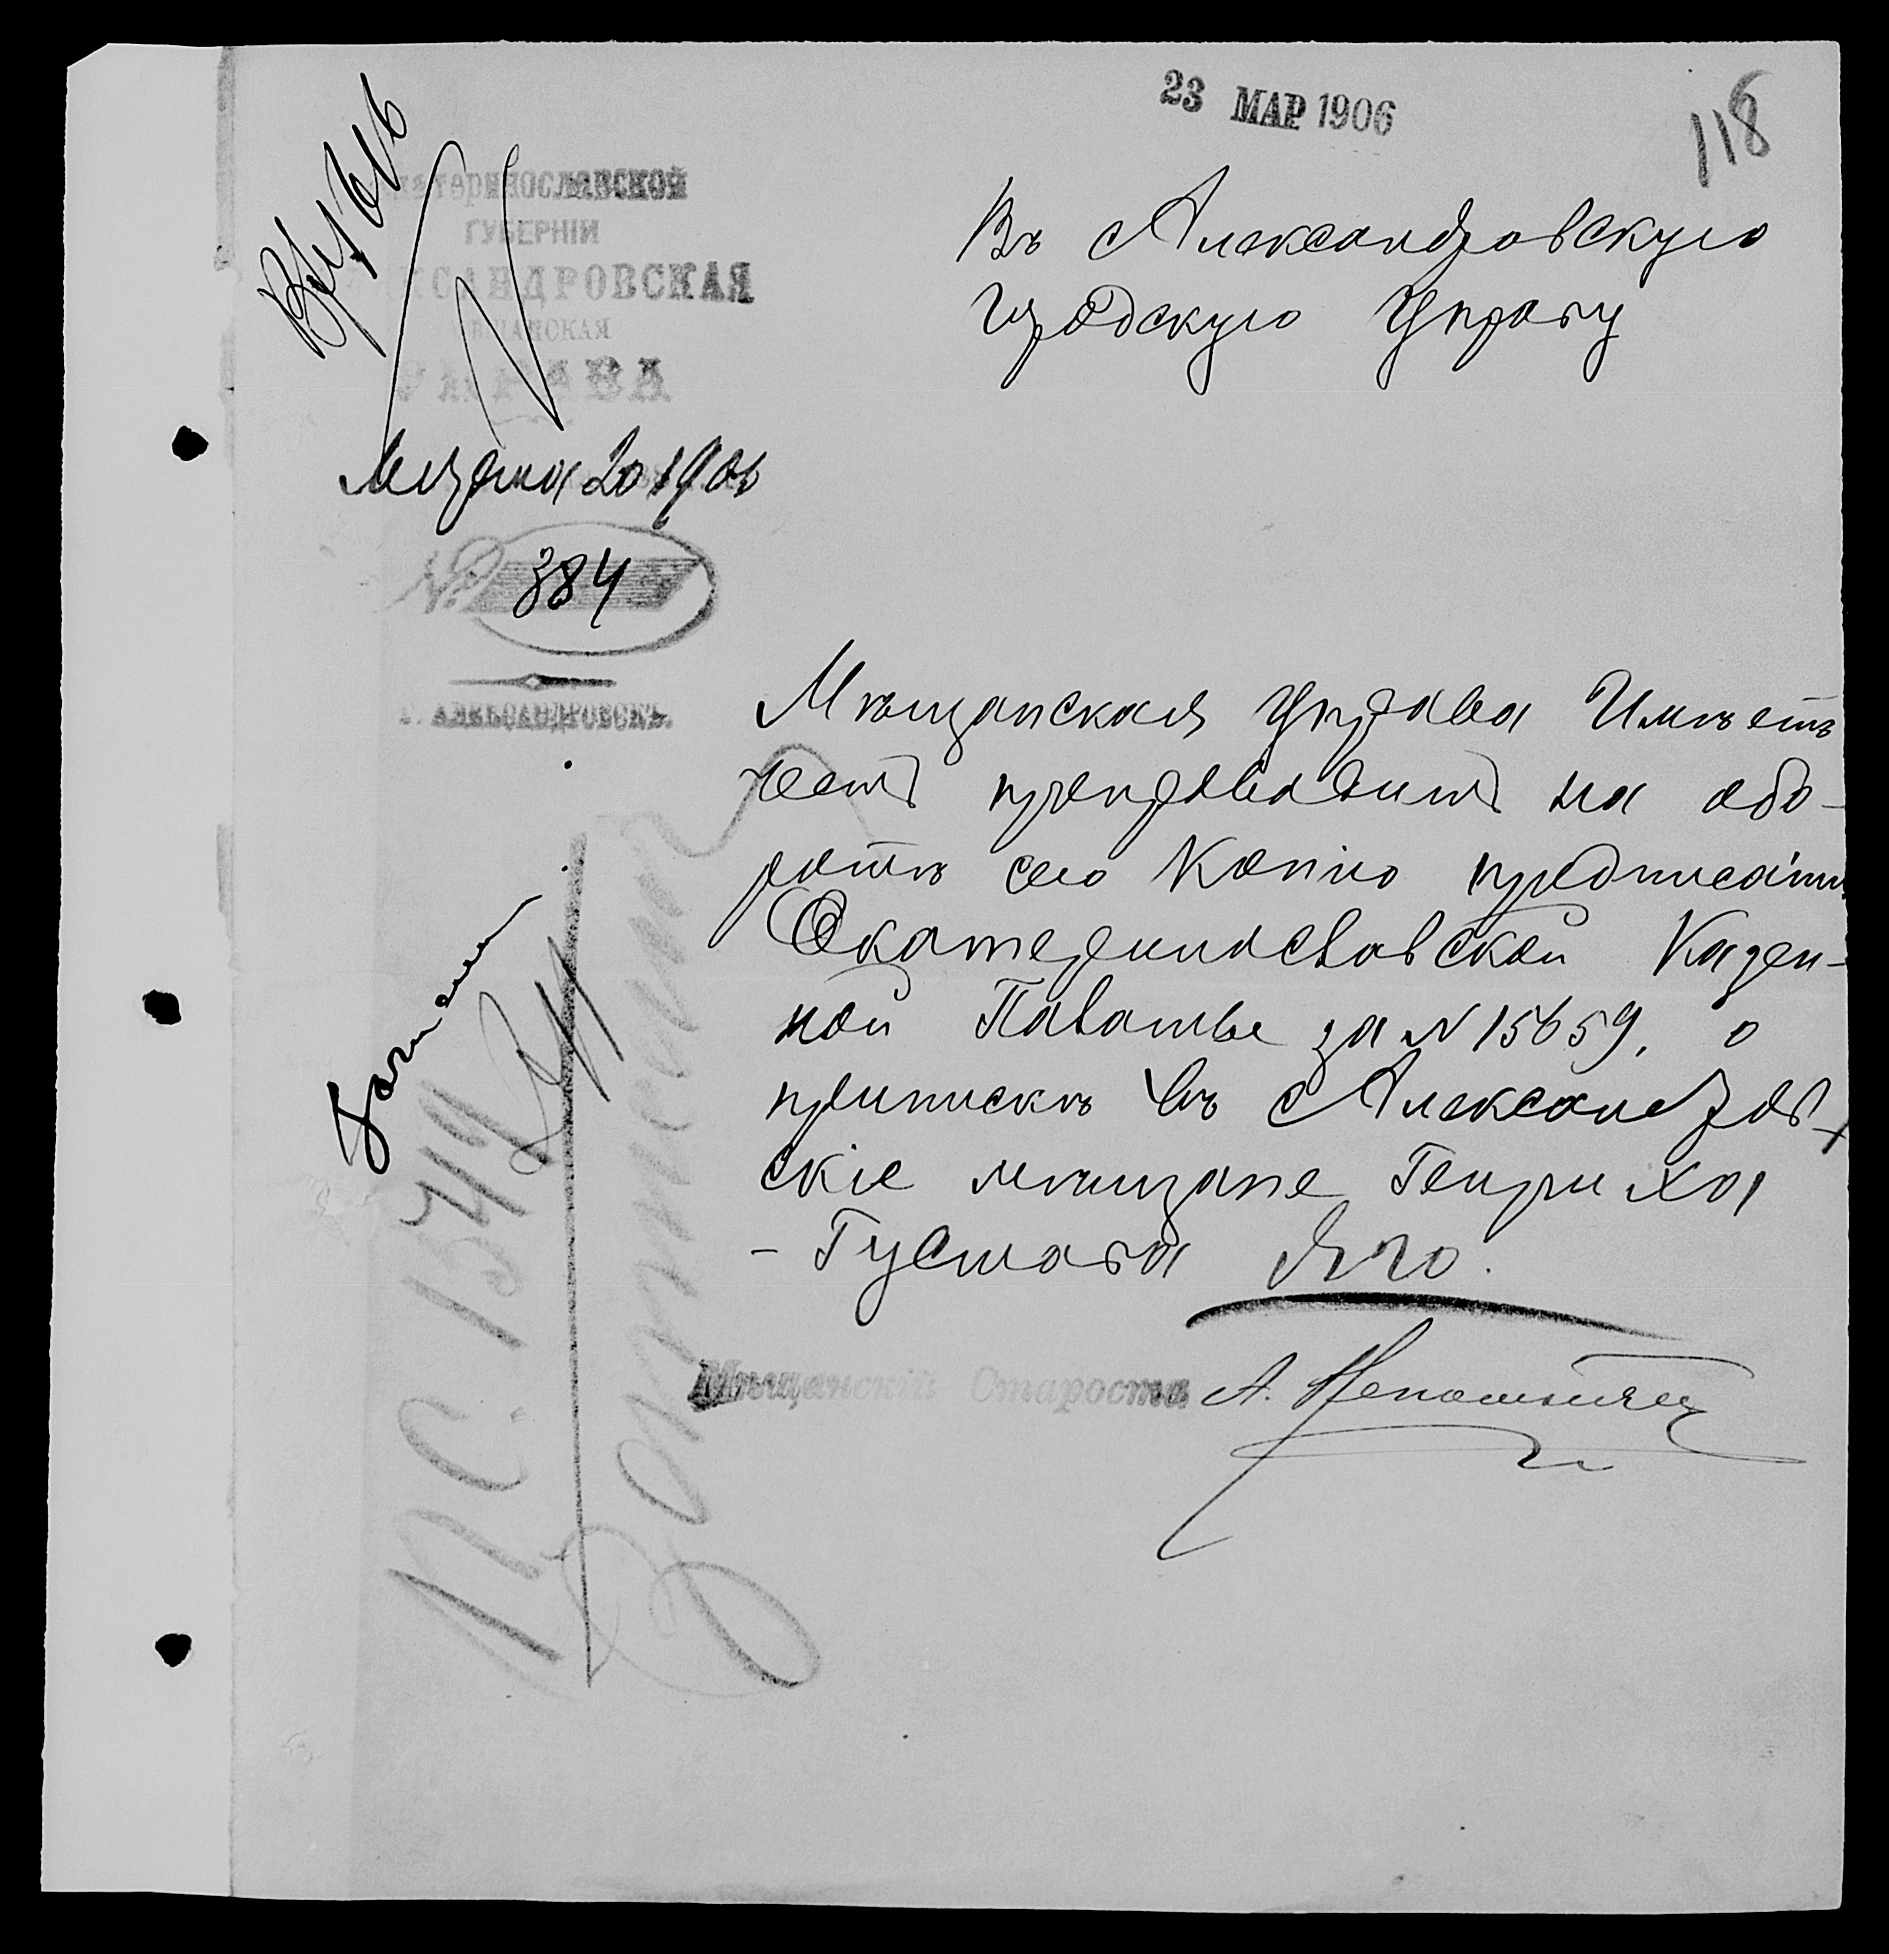 23 МАР 1906
118
Екатеринославской
ГУБЕРНІИ
АЛЕКСАНДРОВСКАЯ
МѢЩАНСКАЯ
УПРАВА
Марта 20 1906
№ 384
Г. АЛЕКСАНДРОВСКЪ.
Въ Александровскую
Городскую Управу
Мѣщанская Управа Имѣетъ
честь препроводить на обо-
ротѣ сего Копію предписанія
Екатеринославской Казен-
ной Палаты за № 15659, о
припискѣ въ Александров-
скіе мѣщане Генриха
- Густава
Мѣщанскій Староста